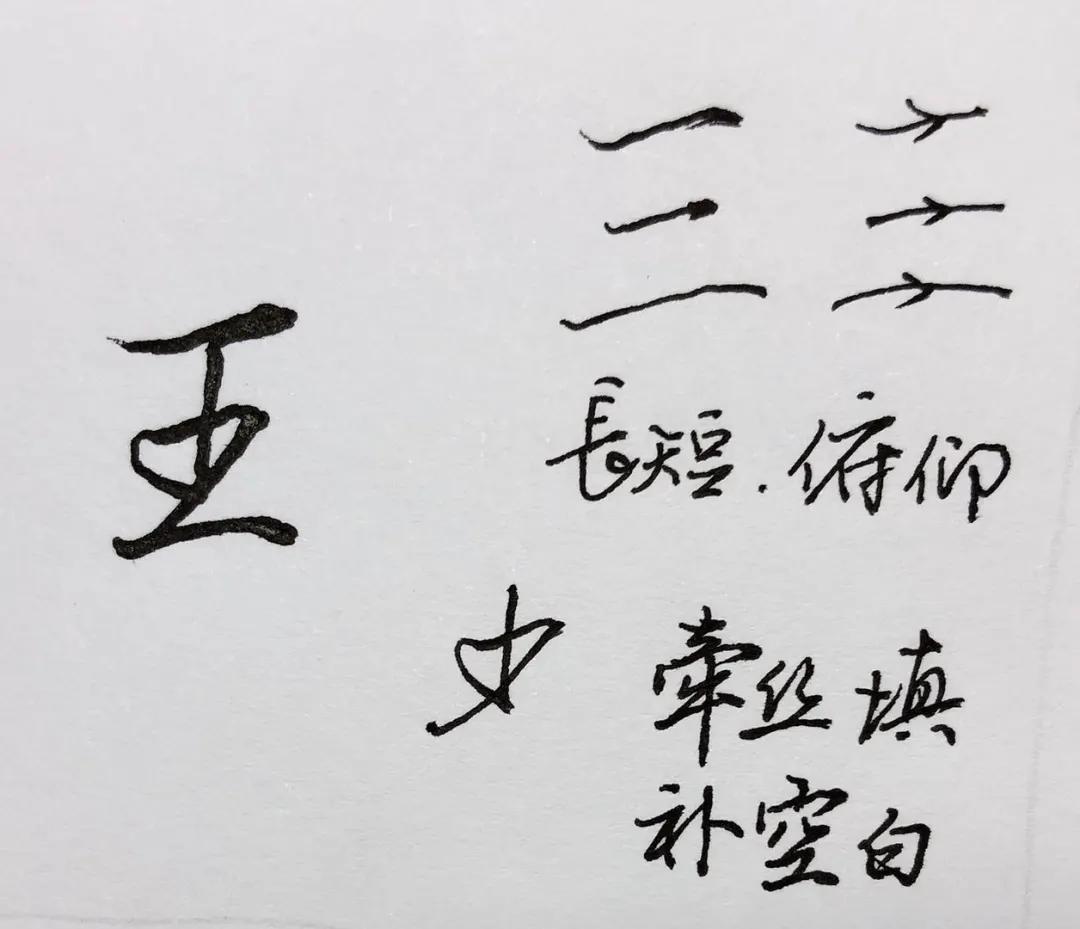 王
長短.俯仰
牵丝填
补空白